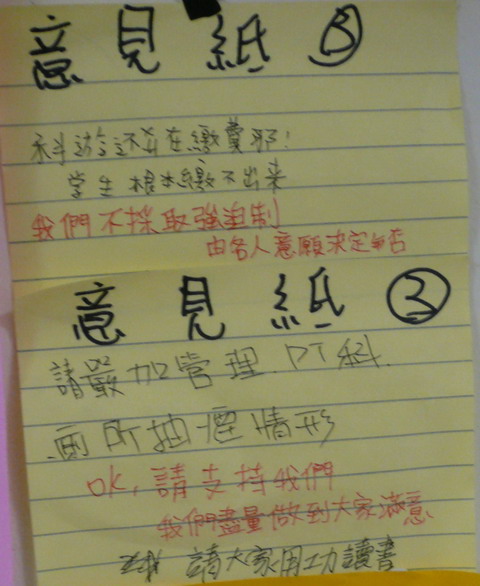 意見紙③
科遊還不在繳費耶!
学生根本繳不出来
我們不採取強迫制
由各人意願決定
意見紙②
請嚴加管理 PT科.
廁所抽煙情形
OK, 請支持我們
我們盡量做到大家滿意
請大家用功讀書